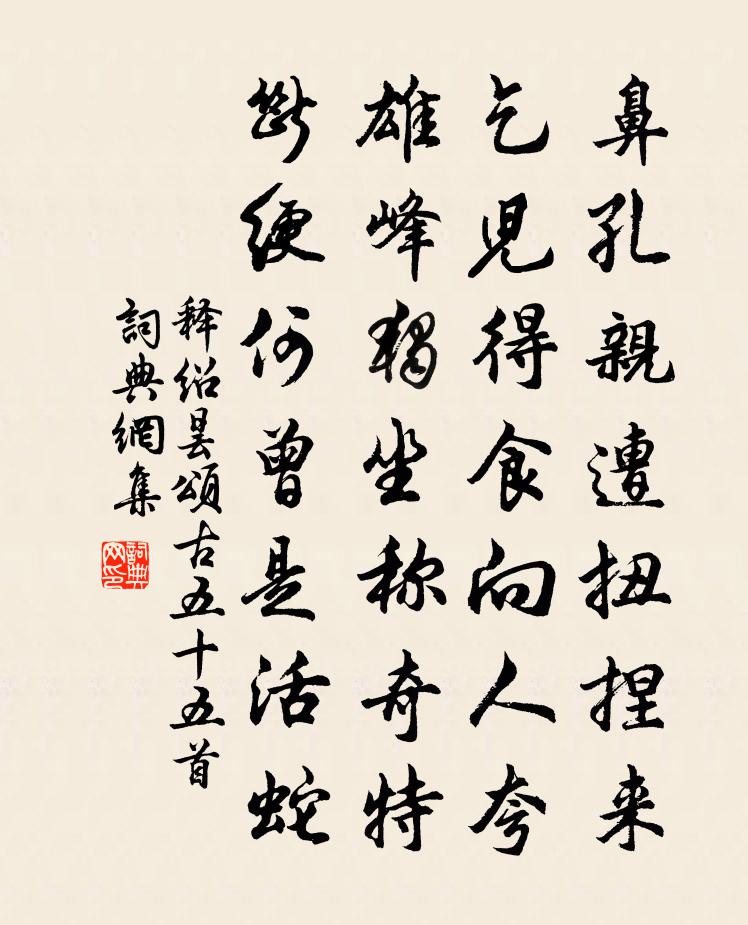 鼻孔親遭扭捏来
乞児得食向人夸
雄峰獨坐称奇特
斷綆何曾是活蛇
释绍昙頌古五十五首
詞典網集
詞典网印